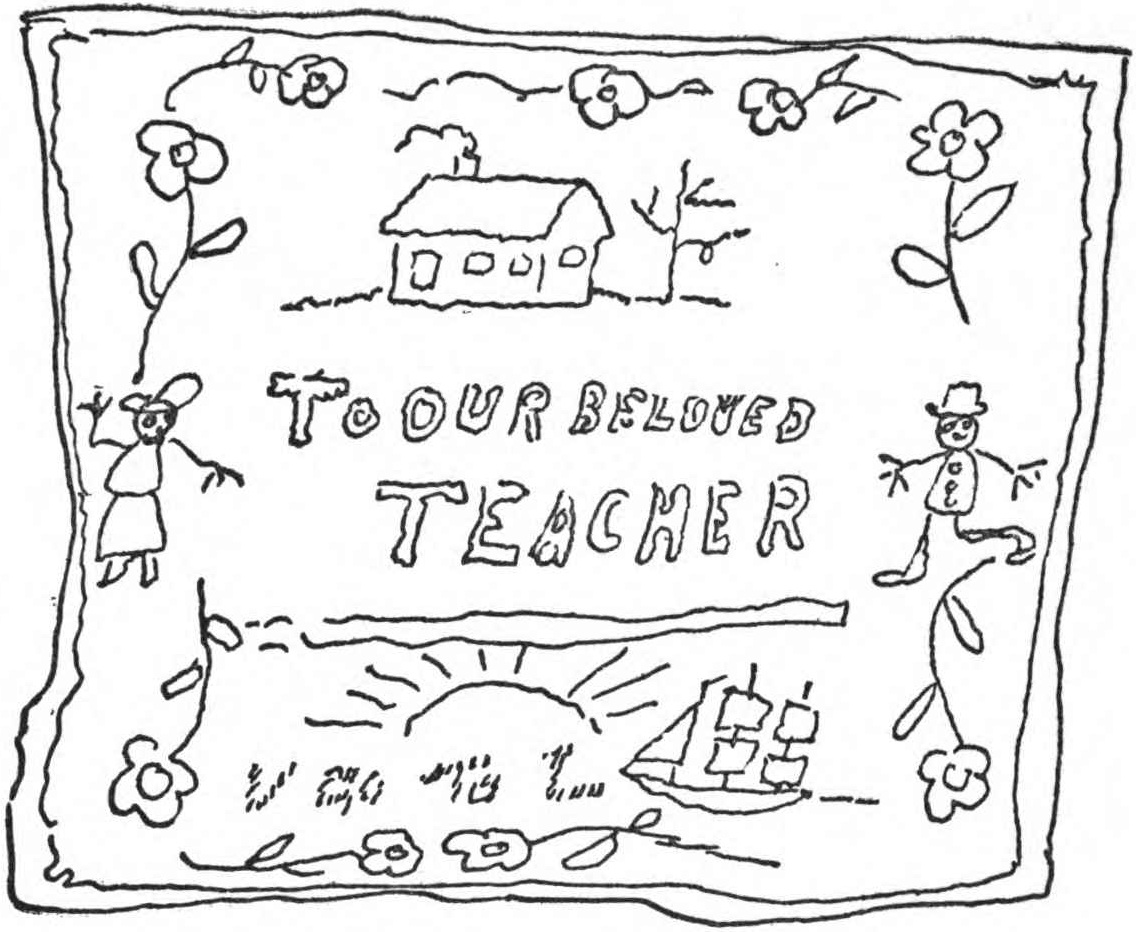 TO OUR BELOVED
TEACHER